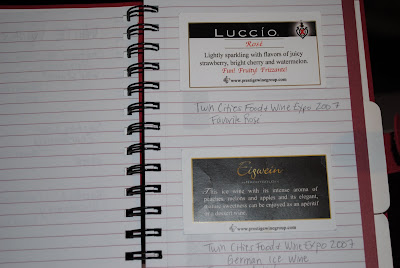 LUCCIO
Rosé
Lightly sparkling with flavors of juicy
strawberry, bright cherry and watermelon.
Fun! Fruity! Frizzante!
www.prestigewinegroup.com
Twin Cities Food & Wine Expo 2007
Favorite Rose
Eiswein
This ice wine with its intense aroma of
peaches, melons and apples and its elegant,
mature sweetness can be enjoyed as an aperitif
or a dessert wine.
www.prestigewinegroup.com
Twin Cities Food & Wine Expo 2007
German Ice Wine